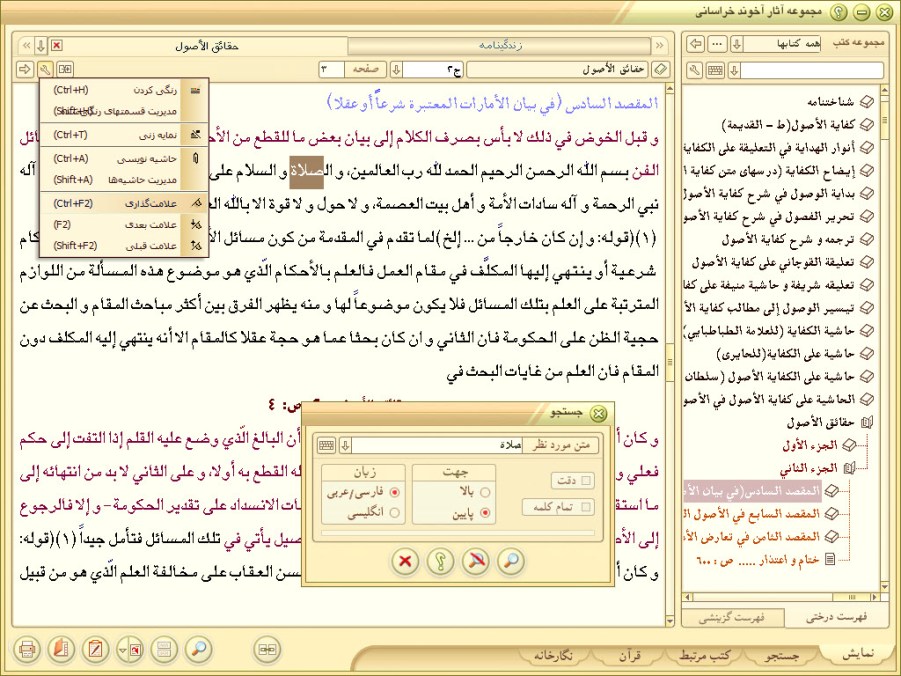 مجموعه آثار آخوند خراسانی
مجموعه کتب
همه کتابها
زندگینامه
حقائق الأصول
حقائق الأصول
ج۲
صفحه
۳
شناختنامه
کفایة الأصول(ط - القدیمة)
أنوار الهدایة في التعلیقة على الکفایة
إیضاح الکفایة (درسهای متن کفایا
بدایة الوصول في شرح کفایة الأصو
تحریر الفصول في شرح کفایة الأصو
ترجمه و شرح کفایة الأصول
تعلیقة القوجاني على کفایة الأصول
تعلیقه شریفة و حاشیة منیفة على کفا
تیسیر الوصول إلى مطالب کفایة الأ
حاشیة الکفایة (للعلامة الطباطبایي)
حاشیة على الکفایة(للحایری)
حاشیة على الکفایة الأصول ( سلطان
الحاشیة على کفایة الأصول في الأصو
حقائق الأصول
الجزء الأول
الجزء الثاني
المقصد السادس(في بیان الأ
المقصد السابع في الأصول ال
المقصد الثامن في تعارض الأ
ختام و اعتذار ..... ص : ٦٠٠
فهرست درختی
فهرست گزینشی
رنگی کردن (Ctrl+H)
مدیریت قسمتهای رنگی
نمایه زنی (Ctrl+T)
حاشیه نویسی (Ctrl+A)
مدیریت حاشیه‌ها (Shift+A)
علامت‌گذاری (Ctrl+F2)
علامت بعدی (F2)
علامت قبلی (Shift+F2)
المقصد السادس (في بیان الأمارات المعتبرة شرعاً أو عقلا)
و قبل الخوض في ذلك لا بأس بصرف الکلام إلى بیان بعض ما للقطع من
الفن بسم الله الرحمن الرحیم الحمد لله رب العالمین، و الصلاة و السلام على آله
نبي الرحمة و آله سادات الأمة و أهل بیت العصمة، و لا حول و لا قوة الا بالله
(١)(قوله: و إن کان خارجاً من ... إلخ)لما تقدم في المقدمة من کون مسائل
شرعیة أو ینتهي إلیها المکلَّف في مقام العمل فالعلم بالأحکام الّذي هو موضوع هذه المسألة من اللوازم
المترتبة على العلم بتلك المسائل فلا یکون موضوعاً لها و منه یظهر الفرق بین أکثر مباحث المقام و البحث عن
حجیة الظن على الحکومة فان الثاني و ان کان بحثا عما هو حجة عقلا کالمقام الا أنه ینتهي إلیه المکلف دون
المقام فان العلم من غایات البحث في
ص: ٤
و کان أن البالغ الّذي وضع علیه القلم إذا التفت إلى حکم
فعلي و له القطع به أولا، و على الثاني لا بد من انتهائه إلى
ما استقل ات الانسداد على تقدیر الحکومة - و إلا فالرجوع
إلى الأص صیل یأتي في تلك المسائل فتأمل جیداً (١)(قوله:
و کان أ سن العقاب على مخالفة العلم الّذي هو من قبیل
جستجو
متن مورد نظر
صلاة
دقت
تمام کلمه
جهت
بالا
پایین
زبان
فارسی/عربی
انگلیسی
نمایش
جستجو
کتب مرتبط
قرآن
نگارخانه